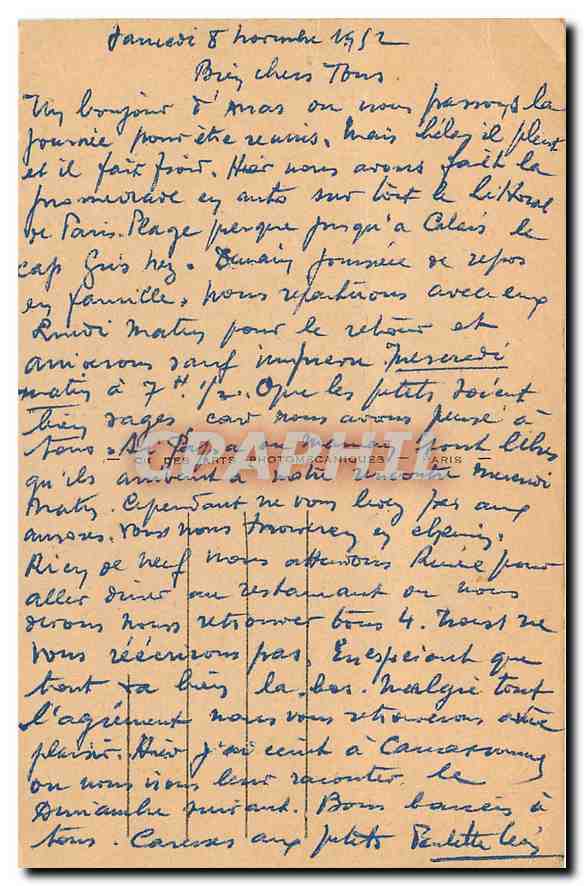 Samedi 8 novembre 1952
Bien chers Tous.
Un bonjour d'Arras où nous passons la
journée pour être réunis. Mais hélas il pleut
et il fait froid. Hier nous avons fait la
promenade en auto sur tout le littoral
de Paris-Plage presque jusqu'à Calais le
cap Gris Nez. Demain journée de repos
en famille, nous repartirons avec eux
Lundi matin pour le retour et
arriverons sauf imprévu Mercredi
matin à 7 H 1/2. Que les petits soient
bien sages car nous avons pensé à
tous. Si Papa ou maman sont libres
qu'ils arrivent à notre rencontre mercredi
matin. Cependant ne vous levez pas aux
aurores. Vous nous trouverez en chemin.
Rien de neuf nous attendons pour
aller diner au restaurant où nous
devons nous retrouver tous 4. ne
vous réécrirons pas. En espérant que
tout va bien là-bas. Malgré tout
l'agrément nous vous retrouverons avec
plaisir. Hier j'ai écrit à Carcassonne
où nous irons leur raconter le
Dimanche suivant. Bons baisers à
tous. Caresses aux petits Paulette
CPARPHIL
DES ARTS PHOTOMECANIQUES PARIS